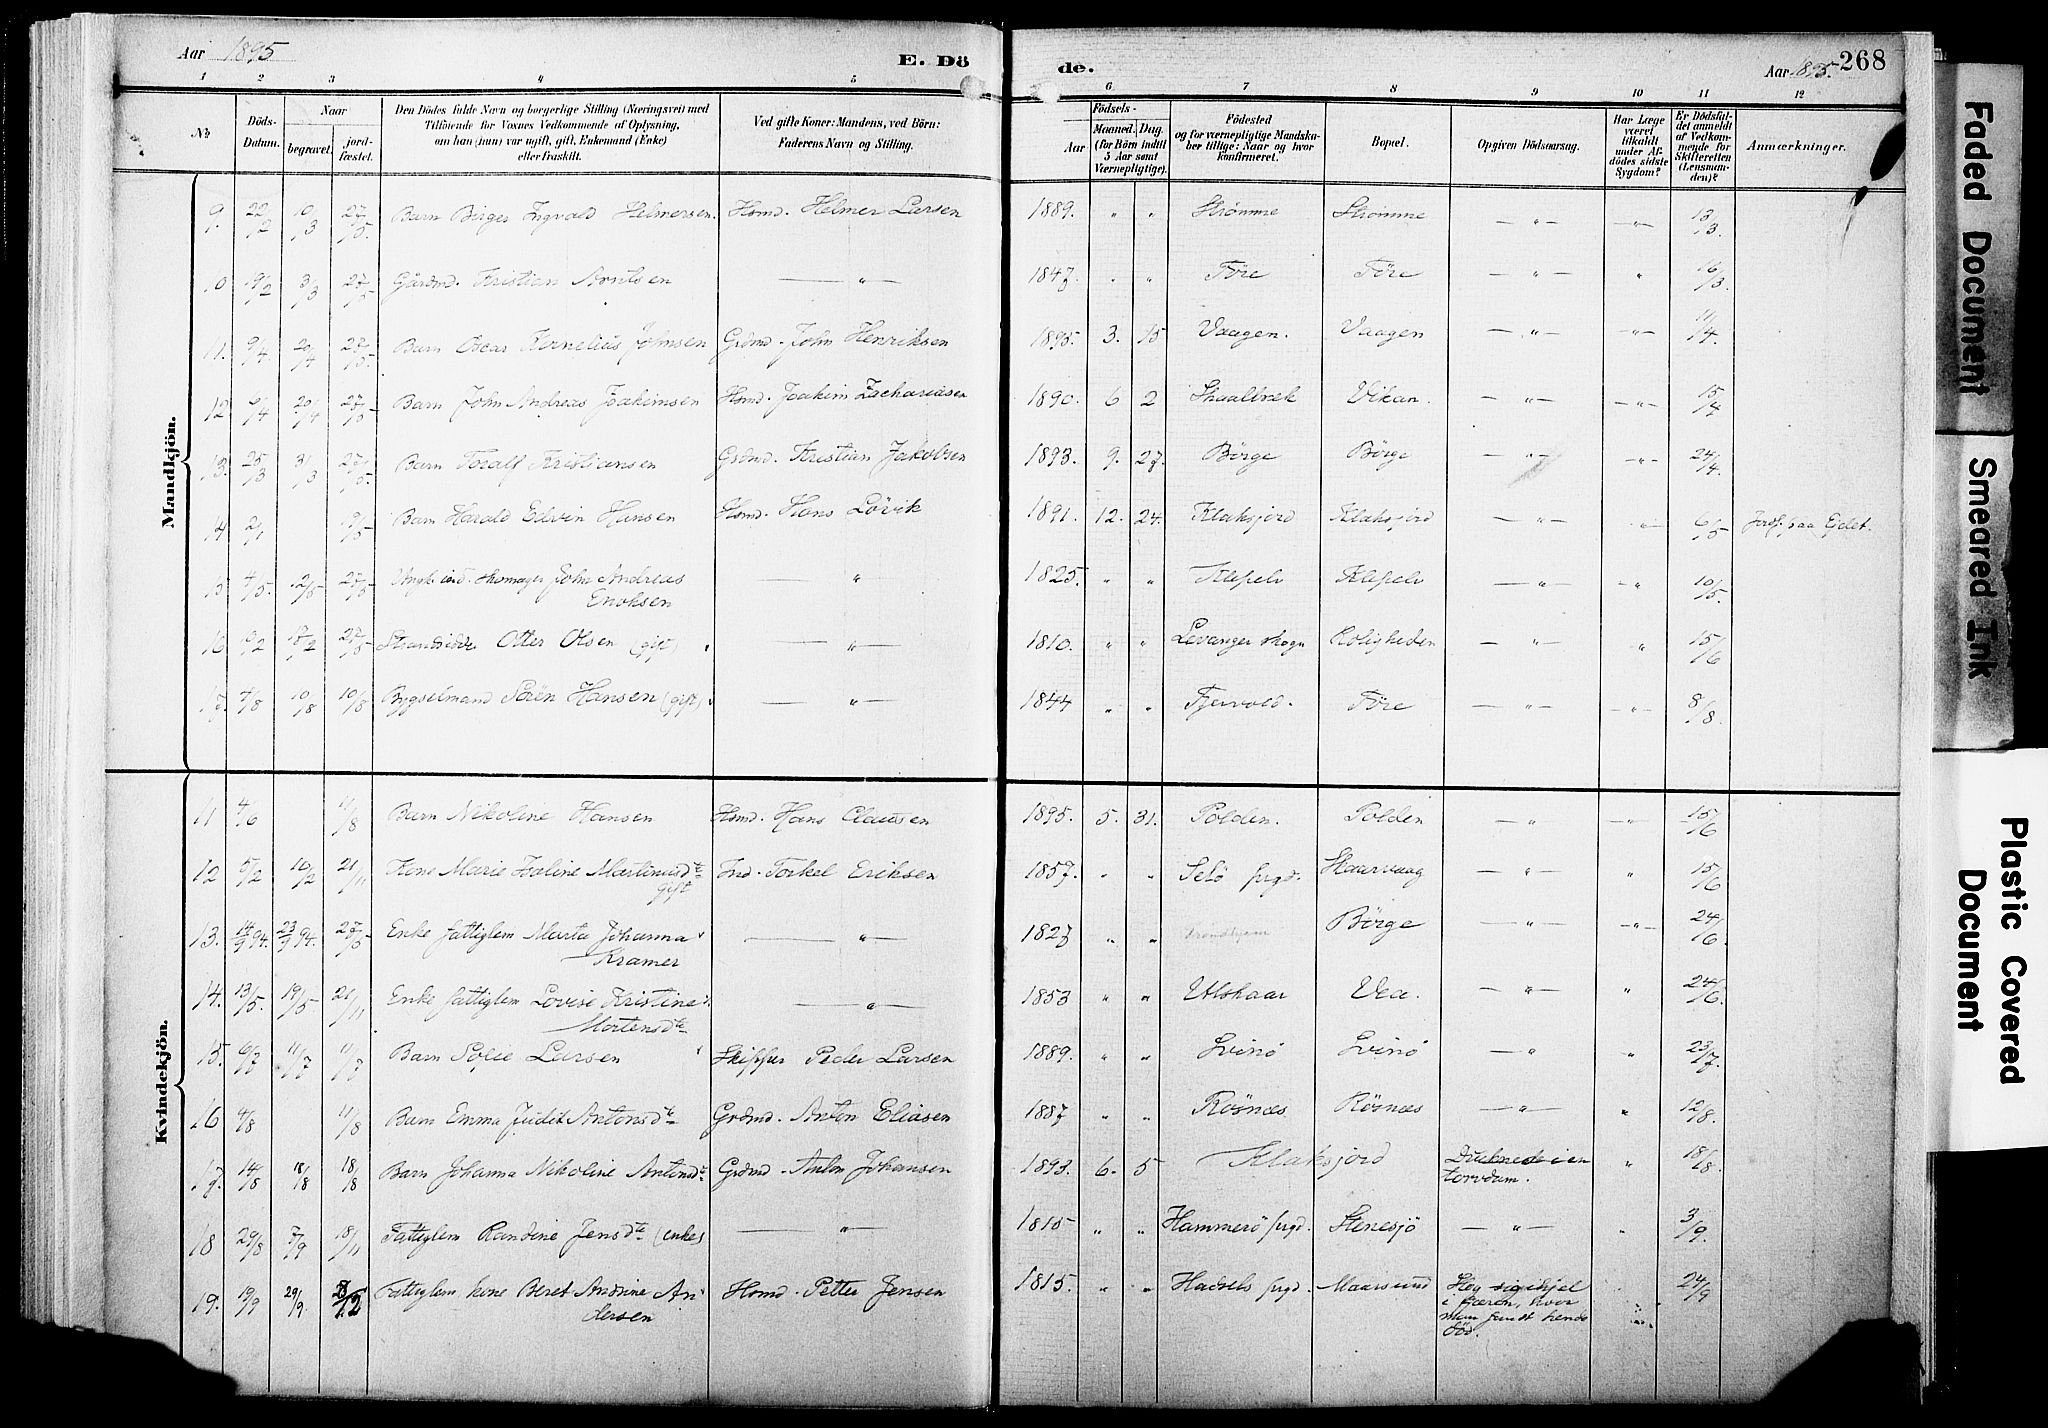 Aar 1895
E. Dö
de.
Aar 1895.
268
1 2 3 4 5 6 7 8 9 10 11 12
No
Döds-
Datum.
Naar
begravet.
jord-
fæstet.
Den Dödes fulde Navn og borgerlige Stilling (Næringsvei) med
Tilföiende for Voxnes Vedkommende af Oplysning,
om han (hun) var ugift, gift, Enkemand (Enke)
eller fraskilt.
Ved gifte Koner: Mandens, ved Börn:
Faderens Navn og Stilling.
Födsels-
Aar
Maaned. Dag.
(for Börn indtil
5 Aar samt
Værnepligtige).
Födested
og for værnepligtige Mandska-
ber tillige: Naar og hvor
konfirmeret.
Bopæl.
Opgiven Dödsaarsag.
Har Læge
været
tilkaldt
under Af-
dödes sidste
Sygdom?
Er Dödsfal-
det anmeldt
af Vedkom-
mende for
Skifteretten
(Lensman-
den)?
Anmærkninger.
Mandkjön.
9. 22/2 10/3 27/5. Barn Birger Ingvald Helmersen. Hsmd. Helmer Larsen 1889. " " Strømme Strømme — " — — " — 13/3.
10 19/2 3/3 27/5 Gårdmd. Kristian Arntsen — " — 1847. " " Före Före — " — " 16/3.
11. 9/4. 20/4 27/5. Barn Oscar Kornelius Johnsen Grdmd. John Henriksen 1895. 3. 15 Vaagen. Vaagen — " — — " — 11/4.
12 6/4 20/4 27/5 Barn John Andreas Joakimsen Hsmd. Joakim Zachariasen 1890. 6 2 Skaalbræk Vikan. — " — — " — 15/4
13. 25/3 31/3 27/5. Barn Toralf Kristiansen Grdmd. Kristian Jakobsen 1893. 9. 27. Börge Börge — " — — " — 24/4.
14 2/1 19/5 Barn Harald Edvin Hansen Hsmd. Hans Lövik 1891. 12. 24. Klaksjord Klaksjord — " — — " — 6/5 Jordf. paa Ejdet.
15 4/5. 12/5 27/5 Ungk. ind. skomager John Andreas
Enoksen — " — 1825. " " Klepelv Klepelv — " — — " — 10/5.
16 19/2 27/5 Strandsidder Otter Olsen (gift) — " — 1810. " " Levanger skogn Roligheden — " — " 15/6
17. 7/8 10/8 10/8 Bygselmand Sören Hansen (gift) — " — 1844 " " Fjervold. Före — " — — " — 8/8.
Kvindekjön.
11 4/6 11/8 Barn Nikoline Hansen Hsmd. Hans Clausen 1895. 5. 31. Polden. Polden — " — — " — 15/6
12 5/2 10/2 21/11 Kone Marie Haline Martinusdte
gift Ind. Torkel Eriksen 1857. " " Selö prgd. Skaarvaag — " — " 15/6
13. 14/9 94. 23/9 94. 27/5 Enke fattiglem Marta Johanna
Kramer — " — 1827 " " Trondhjem Börge — " — — " — 24/6.
14. 13/5. 19/5 21/11 Enke fattiglem Lovise Kristine
Mortensdte — " — 1853 " " Alskaar Vea. — " — " 24/6.
15. 6/7 11/7 11/7 Barn Sofie Larsen Skipper Peder Larsen 1889. " " Lvinö Lvinö — " — " 23/7.
16 4/8 11/8 Barn Emma Judit Antonsdte Grdmd. Anton Eliasen 1887 " " Rösnæs Rösnæs — " — " 12/8.
17. 14/8 18/8 18/8 Barn Johanna Nikoline Antonsdte Grdmd. Anton Johansen 1893. 6. 5 Klaksjord Druknede i en
torvdam. " 18/8.
18 29/8 7/9 18/11 Fattiglem Randine Jensdte (enke) — " — 1815 " " Hammerö prgd. Stenesjö — " — " 3/9.
19. 19/9 29/9. Fattiglem kone Beret Andrine An
dersen Hsmd. Petter Jensen 1815. " " Hadsels prgd. Maarsund Slog sig ihjel
i fjæren, hvor
man fandt hende
död. 24/9
Faded Document
Smeared Ink
Plastic Covered
Document